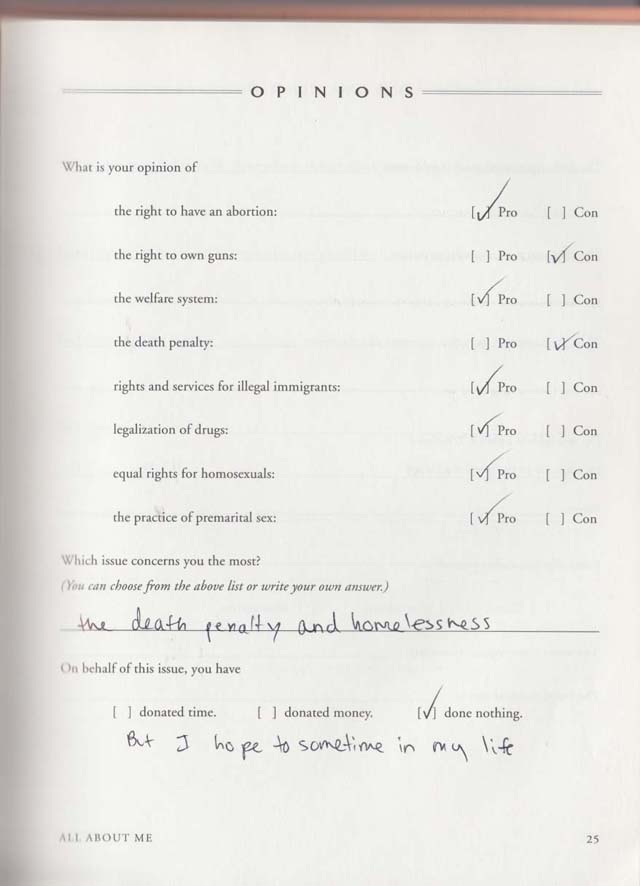 OPINIONS
What is your opinion of
the right to have an abortion: [✓] Pro [ ] Con
the right to own guns: [ ] Pro [✓] Con
the welfare system: [✓] Pro [ ] Con
the death penalty: [ ] Pro [✓] Con
rights and services for illegal immigrants: [✓] Pro [ ] Con
legalization of drugs: [✓] Pro [ ] Con
equal rights for homosexuals: [✓] Pro [ ] Con
the practice of premarital sex: [✓] Pro [ ] Con
Which issue concerns you the most?
(You can choose from the above list or write your own answer.)
the death penalty and homelessness
On behalf of this issue, you have
[ ] donated time. [ ] donated money. [✓] done nothing.
But I hope to sometime in my life
ALL ABOUT ME 25